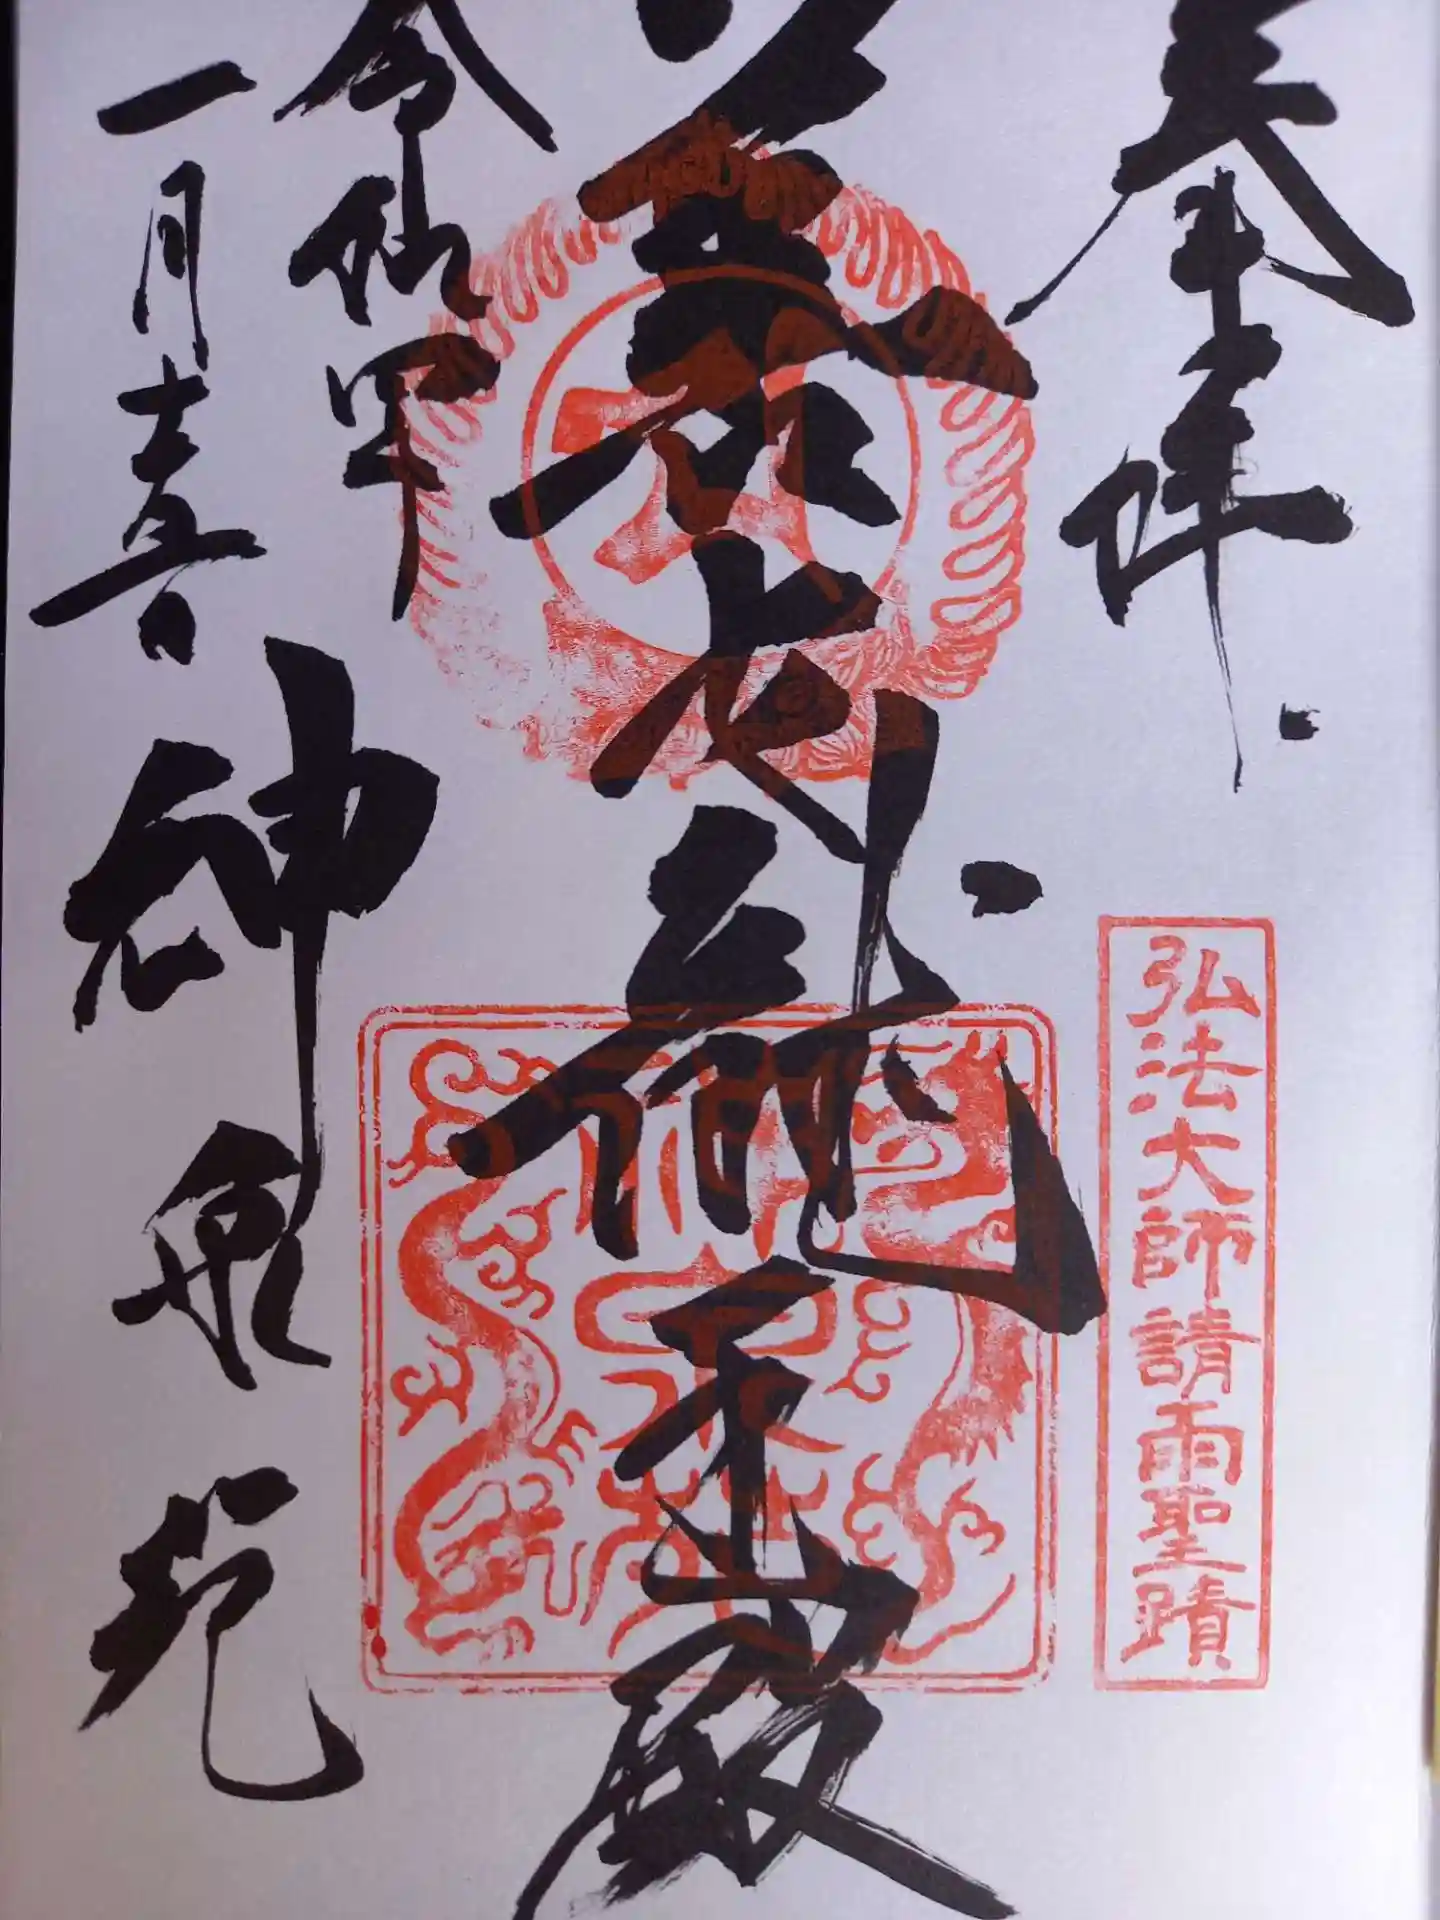 奉拝
弘法大師請雨聖蹟
善女龍王殿
神泉苑
令和四年
一月
神泉苑